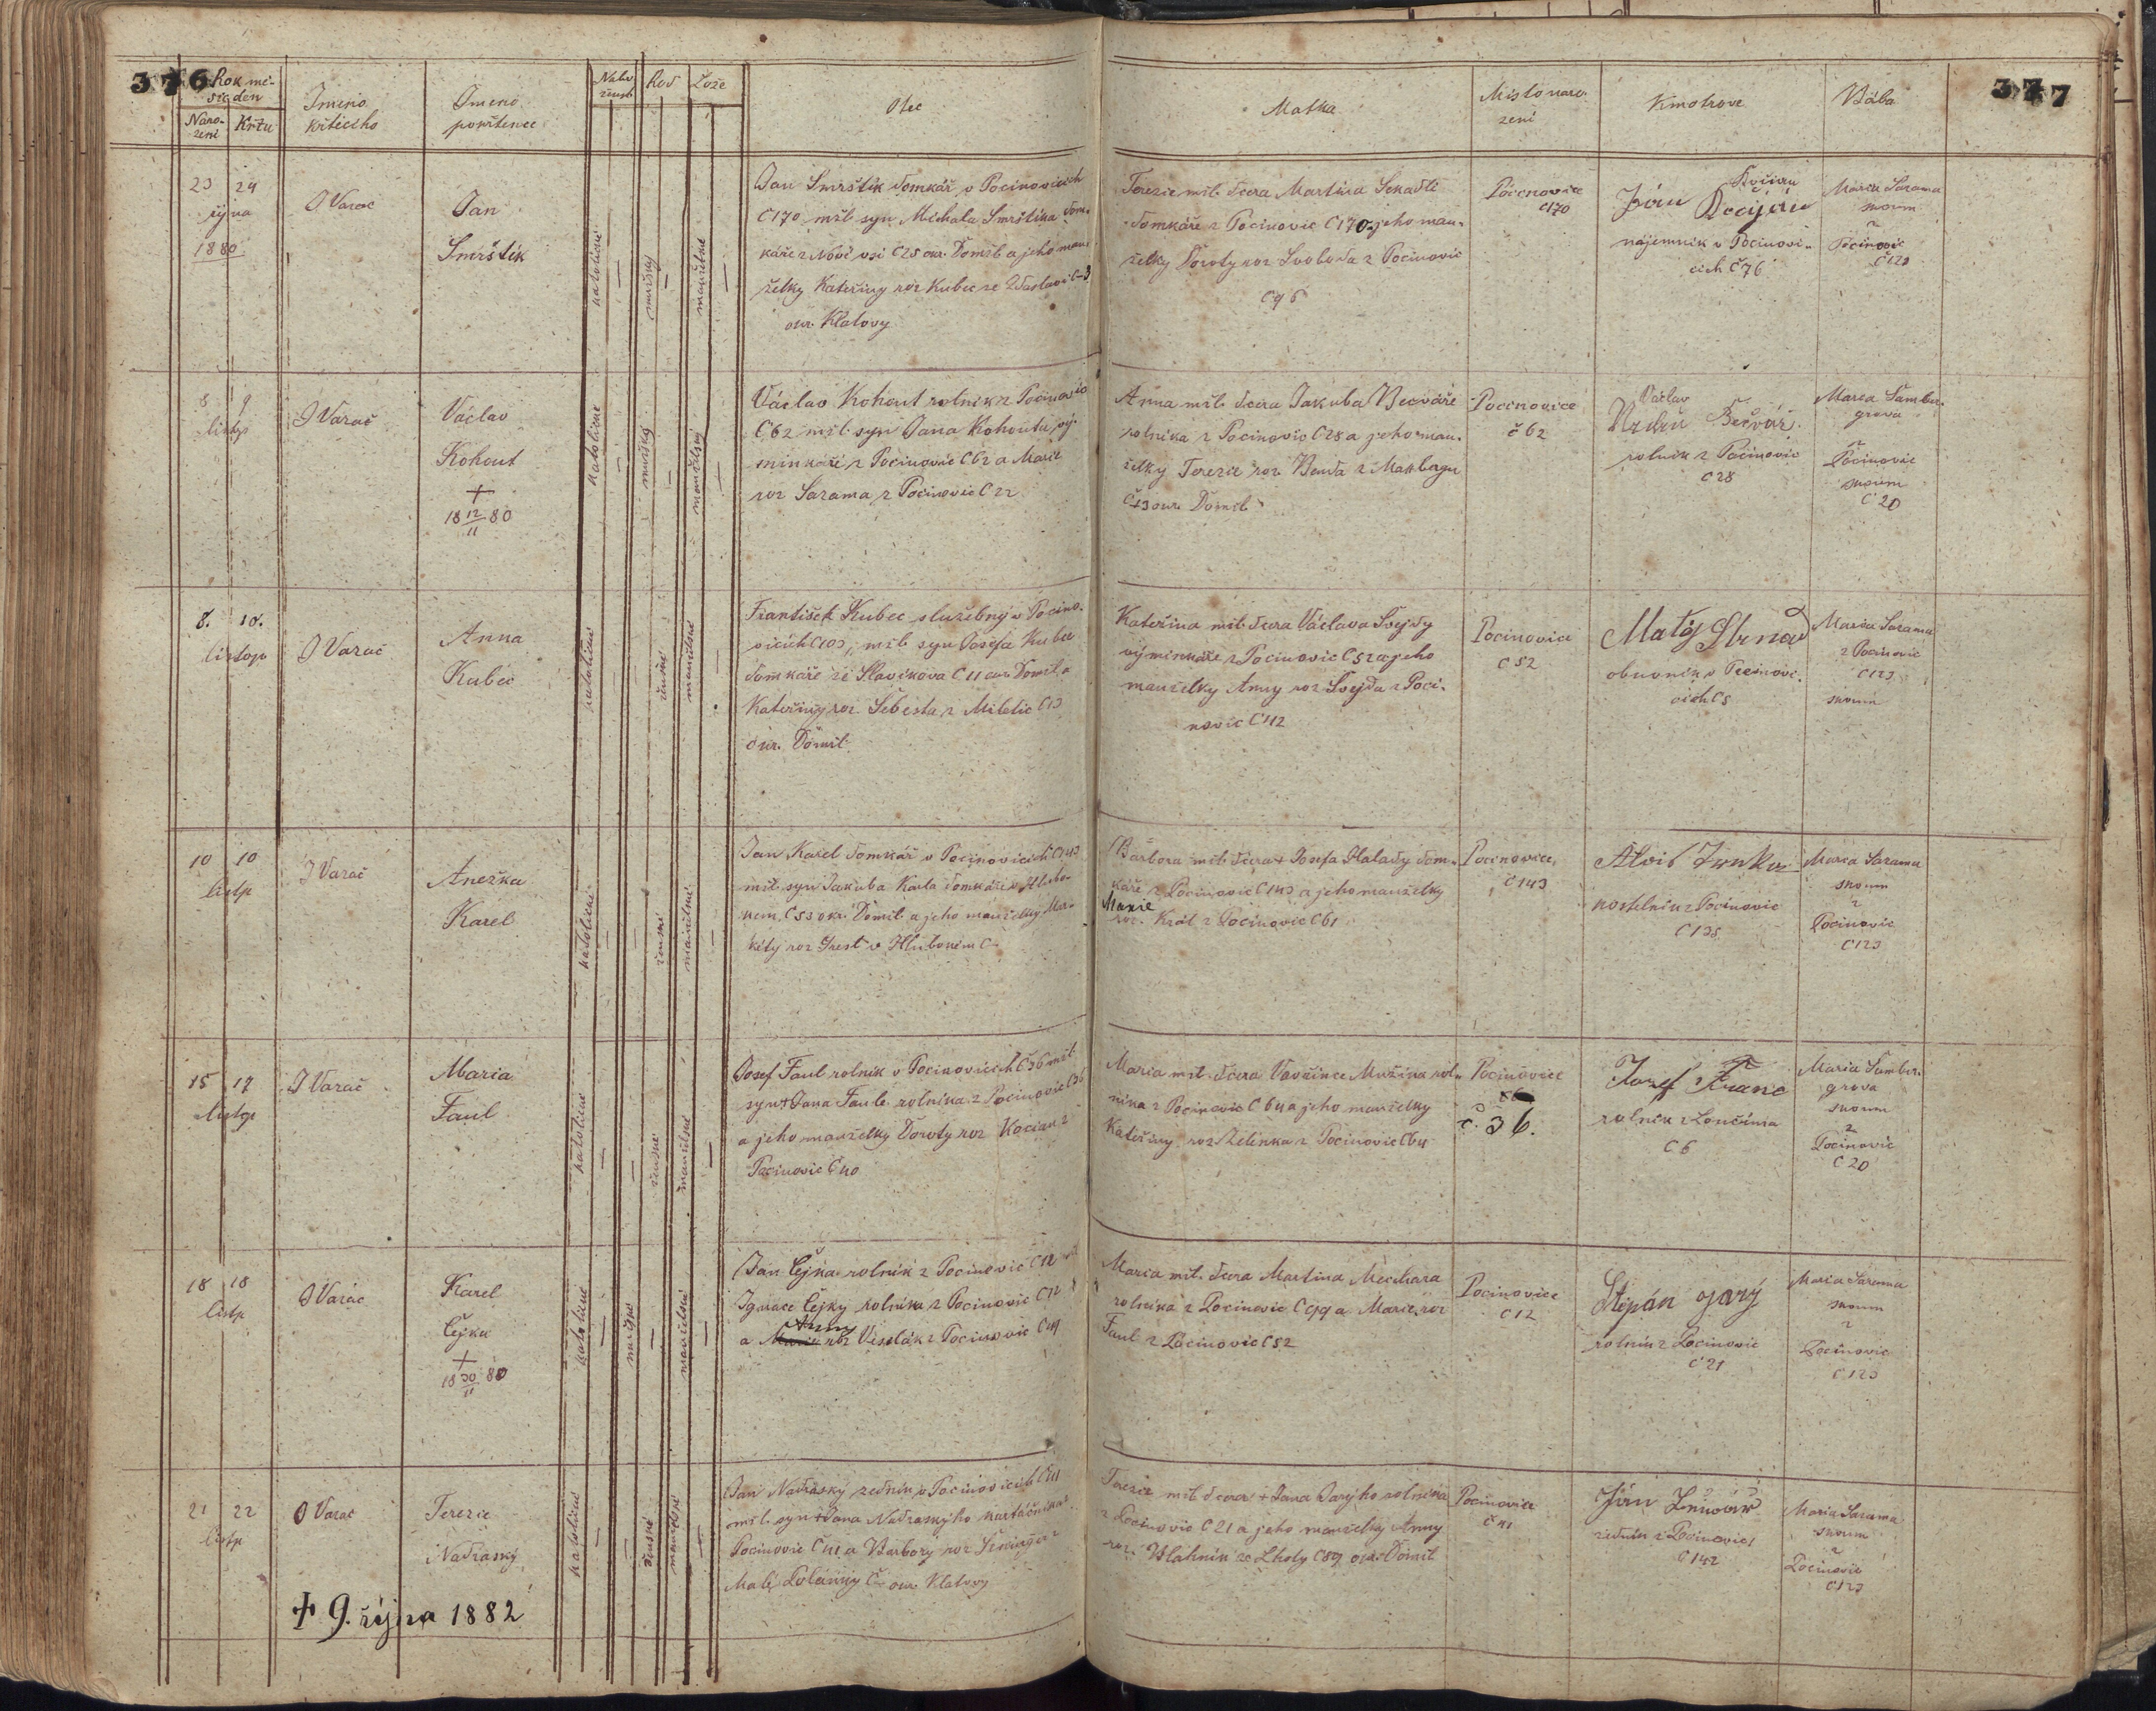 376
Rok mě-
síc den
Naro-
zení
Křtu
Jmeno
křtícího
Jmeno
pokřtence
Nabo
ženst
Rod
Lože
Otec
Matka
Místo naro-
zení
Kmotrove
Bába
377
23 24
října
1880
J Varač
Jan
Smrštík
katolické
mužský
manželské
Jan Smrštík domkář v Pocinovicích
C170 mřb syn Michala Smrštíka dom-
káře z Nové vsi C25 okr. Domžl a jeho man-
želky Kateřiny roz Kubec ze Zdaslavi C-3
okr. Klatovy
Terezie mřb. dcera Martina
domkáře z Pocinovic C170 a jeho man-
želky Doroty roz Svoboda z Pocinovic
C96
Pocinovice
C170
Kočian
Ján Kocyán
nájemník v Pocinovi-
cich C76
Maria Sarama
zkoum
z
Pocinovic
C123
8 9
listp
J Varač
Václav
Kohout
+
18 12/11 80
katolické
mužský
manželský
Václav Kohout rolník z Pocinovic
C62 mřb. syn Jana Kohouta vý-
minkáře z Pocinovic C62 a Marie
roz Sarama z Pocinovic C22
Anna mřb. dcera Jakuba Becváře
rolníka z Pocinovic C28 a jeho man-
želky Terezie roz Benda z
C43 okr. Domžl
Pocinovice
č 62
Václav
Bečvář
rolník z Pocinovic
C28
Maria Šamber-
grova
z
Pocinovic
zkoum
C 20
8. 10.
listopa
J Varač
Anna
Kubec
katolické
ženské
manželské
František Kubec služebný v Pocino-
vicích C103, mřb syn Josefa Kubce
domkáře ze Slavíkova C11 okr. Domžl a
Kateřiny roz. Šebesta z Miletic C13
okr. Domžl
Kateřina mřb dcera Václava Švejdy
výminkáře z Pocinovic C52 a jeho
manželky Anny roz Švejda z Poci-
novic C112
Pocinovice
C 52
Matěj Strnad
obuvník v Pocinovi-
cich C5
Maria Sarama
z Pocinovic
C123
zkoum
10 10
listp
J Varač
Anežka
Karel
katolické
ženské
manželské
Jan Karel domkář v Pocinovicích C143
mřb. syn Jakuba Karla domkáře v Hlubo-
kem C53 okr. Domžl a jeho manželky Mar-
kéty roz Trest v Hlubokém C-
Barbora mřb dcera + Josefa Halady dom-
káře z Pocinovic C143 a jeho manželky
Marie
roz. Král z Pocinovic C61
Pocinovice
C143
Alois
kostelník z Pocinovic
C138
Maria Sarama
zkoum
z
Pocinovic
C123
15 17
listp
J Varač
Maria
Faul
katolické
ženské
manželské
Josef Faul rolník v Pocinovicích C36 mřb
syn + Jana Faula rolníka z Pocinovic C36
a jeho manželky Doroty roz Kocian z
Pocinovic C40
Maria mřb. dcera Vavřince Mužíka rol-
níka z Pocinovic C64 a jeho manželky
Kateřiny roz Jelínka z Pocinovic C64
Pocinovice
č. 36.
Jozef Franc
rolník z Loučima
C 6
Maria Šamber-
grova
zkoum
z
Pocinovic
C 20
18 18
listp
J Varač
Karel
Čejka
+
18 30/11 80
katolické
mužské
manželské
Jan Čejka rolník z Pocinovic C12
Ignace Čejky rolníka z Pocinovic C12
Anny
a Marie roz Veselák z Pocinovic C49
Maria mřb. dcera Martina Meckara
rolníka z Pocinovic C99 a Marie, roz
Faul z Pocinovic C52
Pocinovice
C12
Štěpán Jarý
rolník z Pocinovic
C 21
Maria Sarama
zkoum
z
Pocinovic
C123
21 22
listp
J Varač
Terezie
Nadraský
+ 9. října 1882
katolické
ženské
manželské
Jan Nadraský zedník v Pocinovicích C41
mřb. syn + Jana Nadraskýho kartáčníka z
Pocinovic C41 a Barbory roz
Malé Polánky C- okr. Klatovy
Terezie mřb. dcera + Jana Jarýho rolníka
z Pocinovic C21 a jeho manželky Anny
roz. Blahník ze Lhoty C89 okr. Domžl
Pocinovice
č 41
Ján
zedník z Pocinovic
C142
Maria Sarama
zkoum
z
Pocinovic
C123